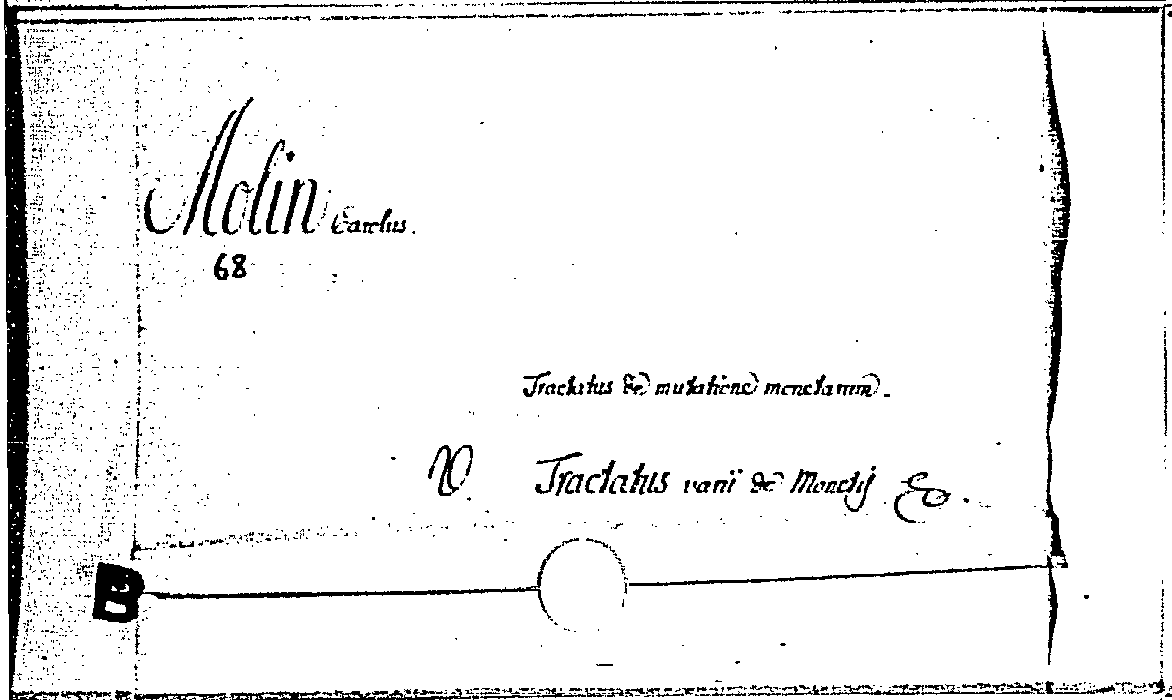 Molin Carolus.
68
Tractatus de mutatione monetarum.
V. Tractatus varii de Monetis &c.
B